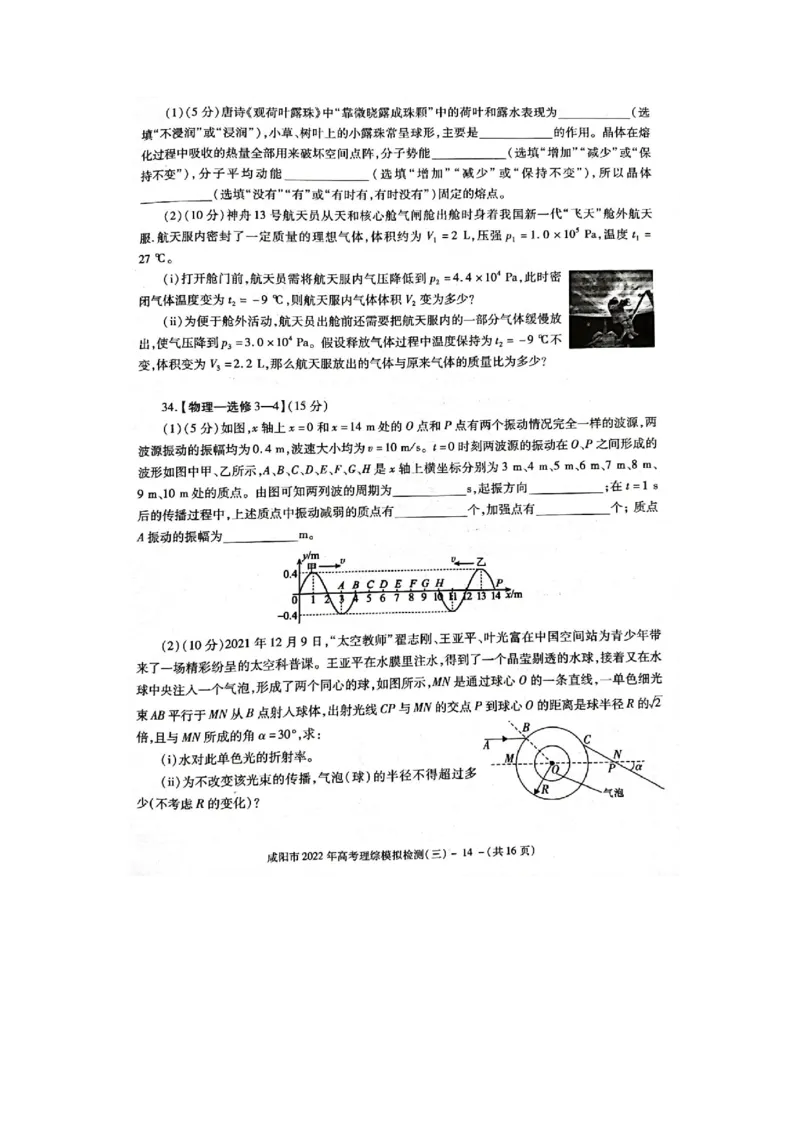 (1)(5分)唐诗《观荷叶露珠》中“靠微晓露成珠颗”中的荷叶和露水表现为__________(选
填“不浸润”或“浸润”),小草、树叶上的小露珠常呈球形,主要是__________的作用。晶体在熔
化过程中吸收的热量全部用来破坏空间点阵,分子势能__________(选填“增加”“减少”或“保
持不变”),分子平均动能__________(选填“增加”“减少”或“保持不变”),所以晶体
__________(选填“没有”“有”或“有时有,有时没有”)固定的熔点。
(2)(10分)神舟13号航天员从天和核心舱气闸舱出舱时身着我国新一代“飞天”舱外航天
服.航天服内密封了一定质量的理想气体,体积约为V₁=2 L,压强p₁=1.0×10⁵ Pa,温度t₁=
27 ℃。
(ⅰ)打开舱门前,航天员需将航天服内气压降低到p₂=4.4×10⁴ Pa,此时密
闭气体温度变为t₂=-9 ℃,则航天服内气体体积V₂变为多少?
(ⅱ)为便于舱外活动,航天员出舱前还需要把航天服内的一部分气体缓慢放
出,使气压降到p₃=3.0×10⁴ Pa。假设释放气体过程中温度保持为t₂=-9 ℃不
变,体积变为V₃=2.2 L,那么航天服放出的气体与原来气体的质量比为多少?
34.【物理—选修3—4】(15分)
(1)(5分)如图,x轴上x=0和x=14 m处的O点和P点有两个振动情况完全一样的波源,两
波源振动的振幅均为0.4 m,波速大小均为v=10 m/s。t=0时刻两波源的振动在O、P之间形成的
波形如图中甲、乙所示,A、B、C、D、E、F、G、H是x轴上横坐标分别为3 m、4 m、5 m、6 m、7 m、8 m、
9 m、10 m处的质点。由图可知两列波的周期为__________s,起振方向__________;在t=1 s
后的传播过程中,上述质点中振动减弱的质点有__________个,加强点有__________个;质点
A振动的振幅为__________m。
y/m
甲 v v 乙
0.4
A B C D E F G H P
0 1 2 3 4 5 6 7 8 9 10 11 12 13 14 x/m
-0.4
(2)(10分)2021年12月9日,“太空教师”翟志刚、王亚平、叶光富在中国空间站为青少年带
来了一场精彩纷呈的太空科普课。王亚平在水膜里注水,得到了一个晶莹剔透的水球,接着又在水
球中央注入一个气泡,形成了两个同心的球,如图所示,MN是通过球心O的一条直线,一单色细光
束AB平行于MN从B点射入球体,出射光线CP与MN的交点P到球心O的距离是球半径R的√2
倍,且与MN所成的角α=30°,求:
(ⅰ)水对此单色光的折射率。
(ⅱ)为不改变该光束的传播,气泡(球)的半径不得超过多
少(不考虑R的变化)?
B
A
C
M
N
O
P
α
R
气泡
咸阳市2022年高考理综模拟检测(三)-14-(共16页)